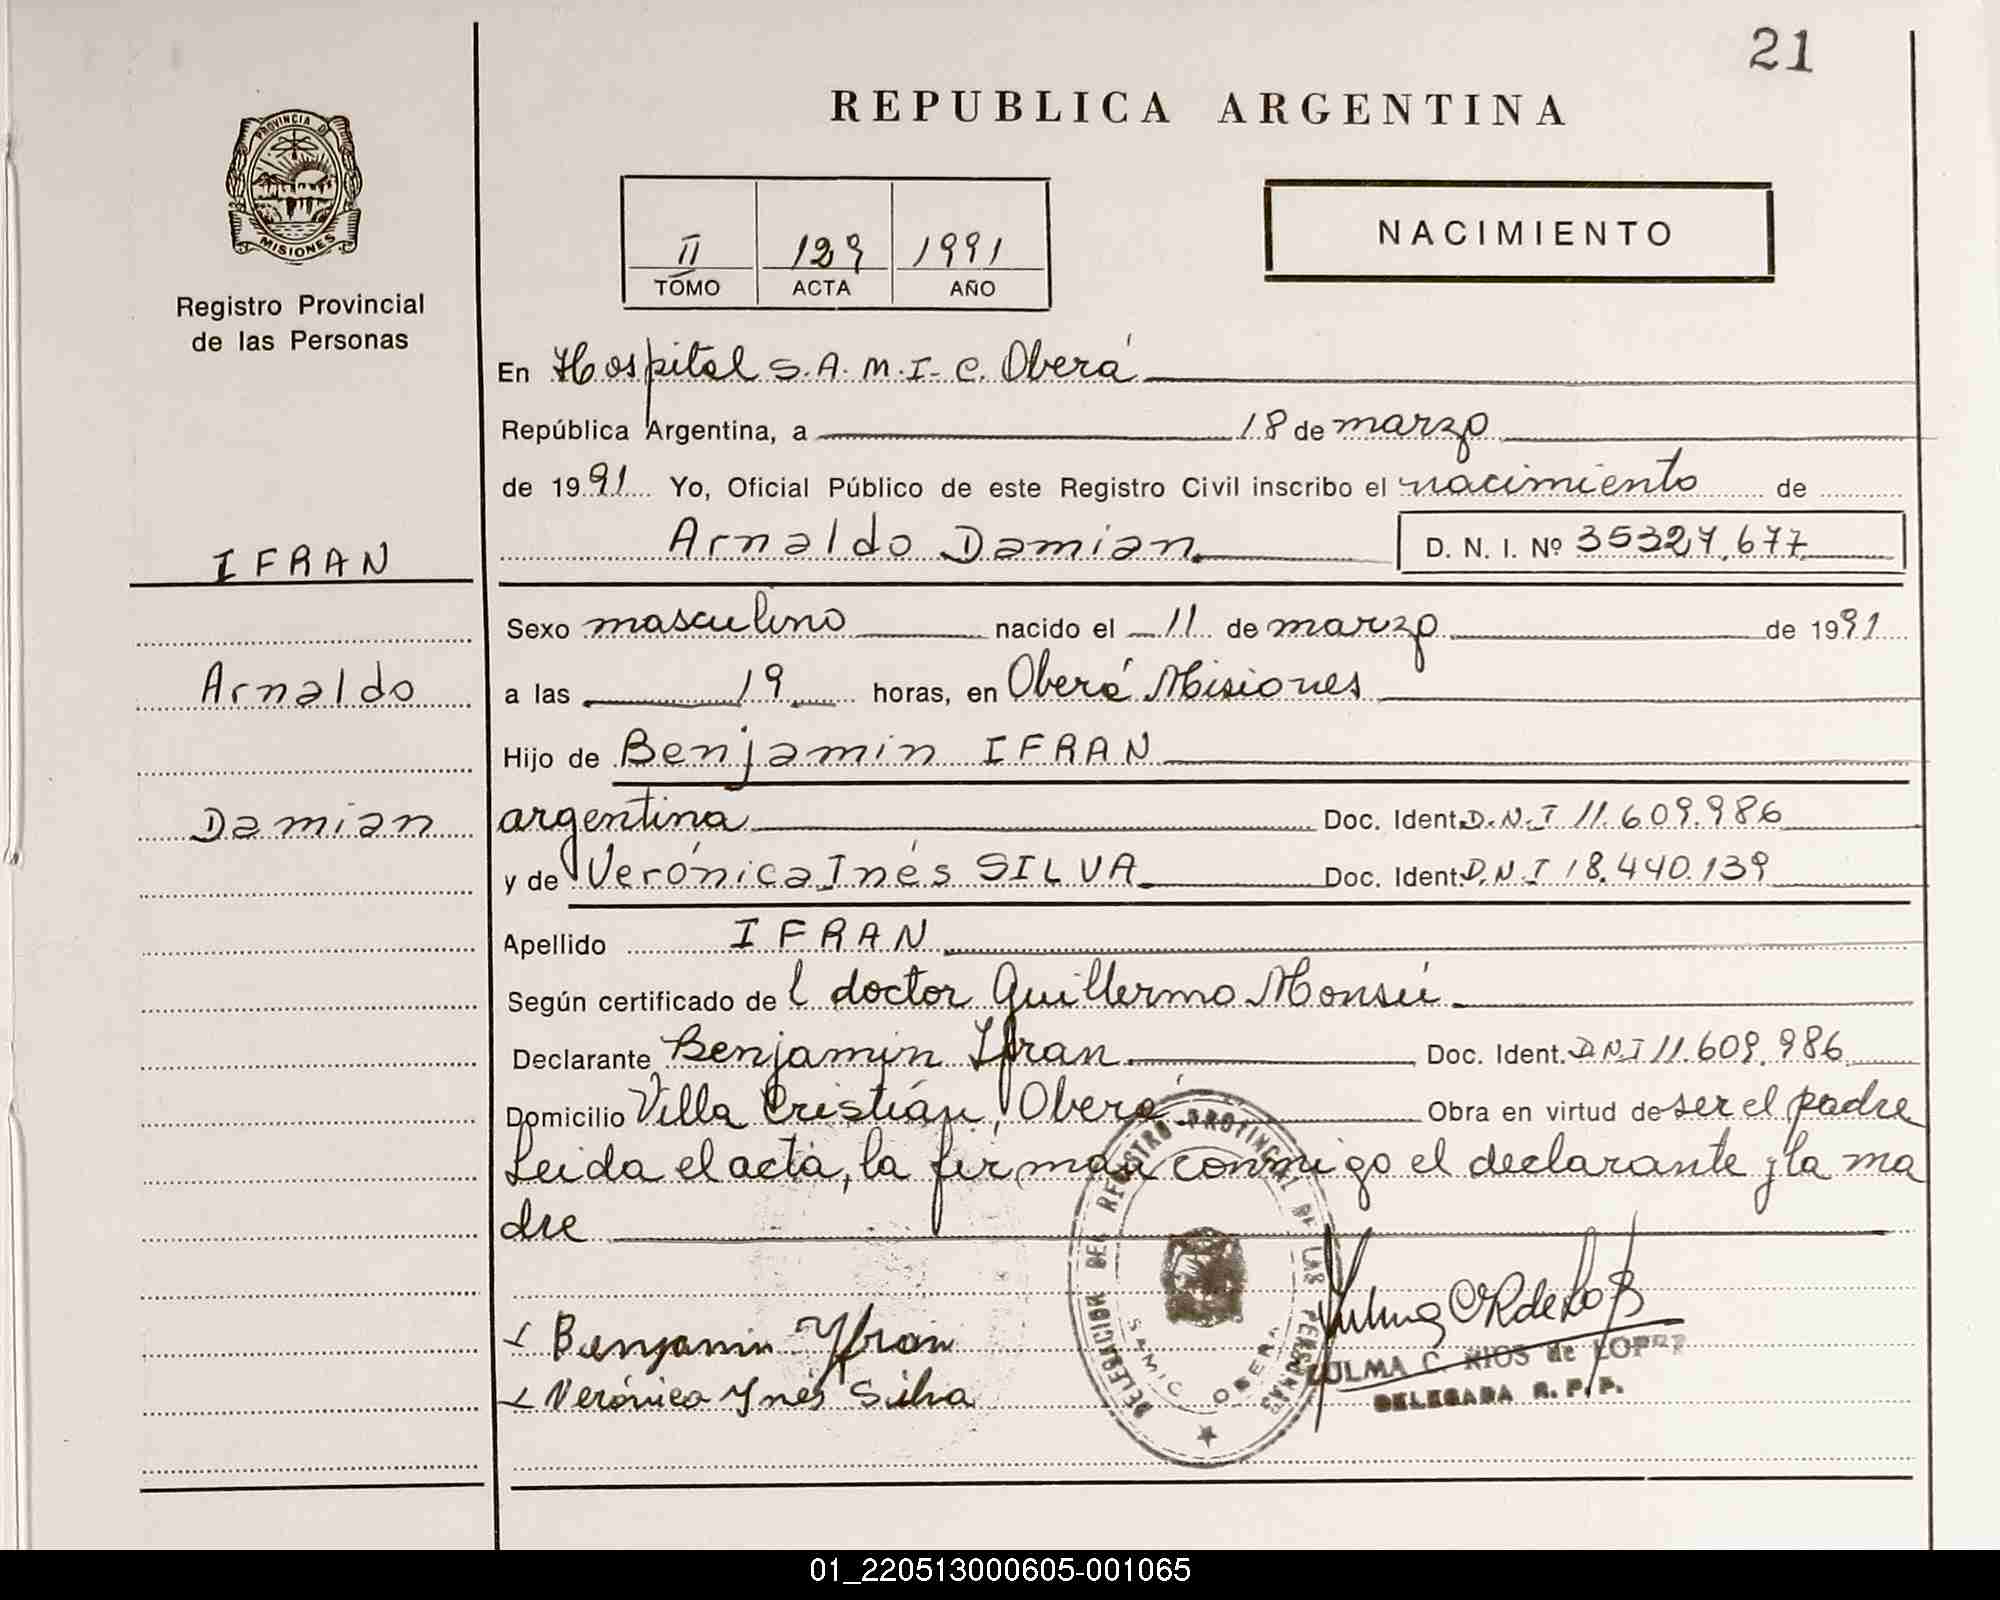 21
REPUBLICA ARGENTINA
PROVINCIA DE
MISIONES
Registro Provincial
de las Personas
II 129 1991
TOMO ACTA AÑO
NACIMIENTO
En Hospital S.A.M.I.C. Oberá
República Argentina, a 18 de marzo
de 1991 Yo, Oficial Público de este Registro Civil inscribo el nacimiento de
IFRAN
Arnaldo Damian D. N. I. Nº 35327.677
Sexo masculino nacido el 11 de marzo de 1991
Arnaldo
a las 19 horas, en Oberá Misiones
Hijo de Benjamin IFRAN
Damian
argentina Doc. Ident. D.N.I 11.609.986
y de Verónica Inés SILVA Doc. Ident. D.N.I 18.440.139
Apellido IFRAN
Según certificado de l doctor Guillermo Monsú
Declarante Benjamin Ifran Doc. Ident. DNI 11.609.986
Domicilio Villa Cristián, Oberá Obra en virtud de ser el padre
Leida el acta, la firman conmigo el declarante y la ma
dre
Benjamin Yfran
Verónica Ynés Silva
DELEGACION DEL REGISTRO PROVINCIAL DE LAS PERSONAS
SAMIC OBERA
ZULMA C. RIOS de LOPEZ
DELEGADA R. P. P.
01_220513000605-001065